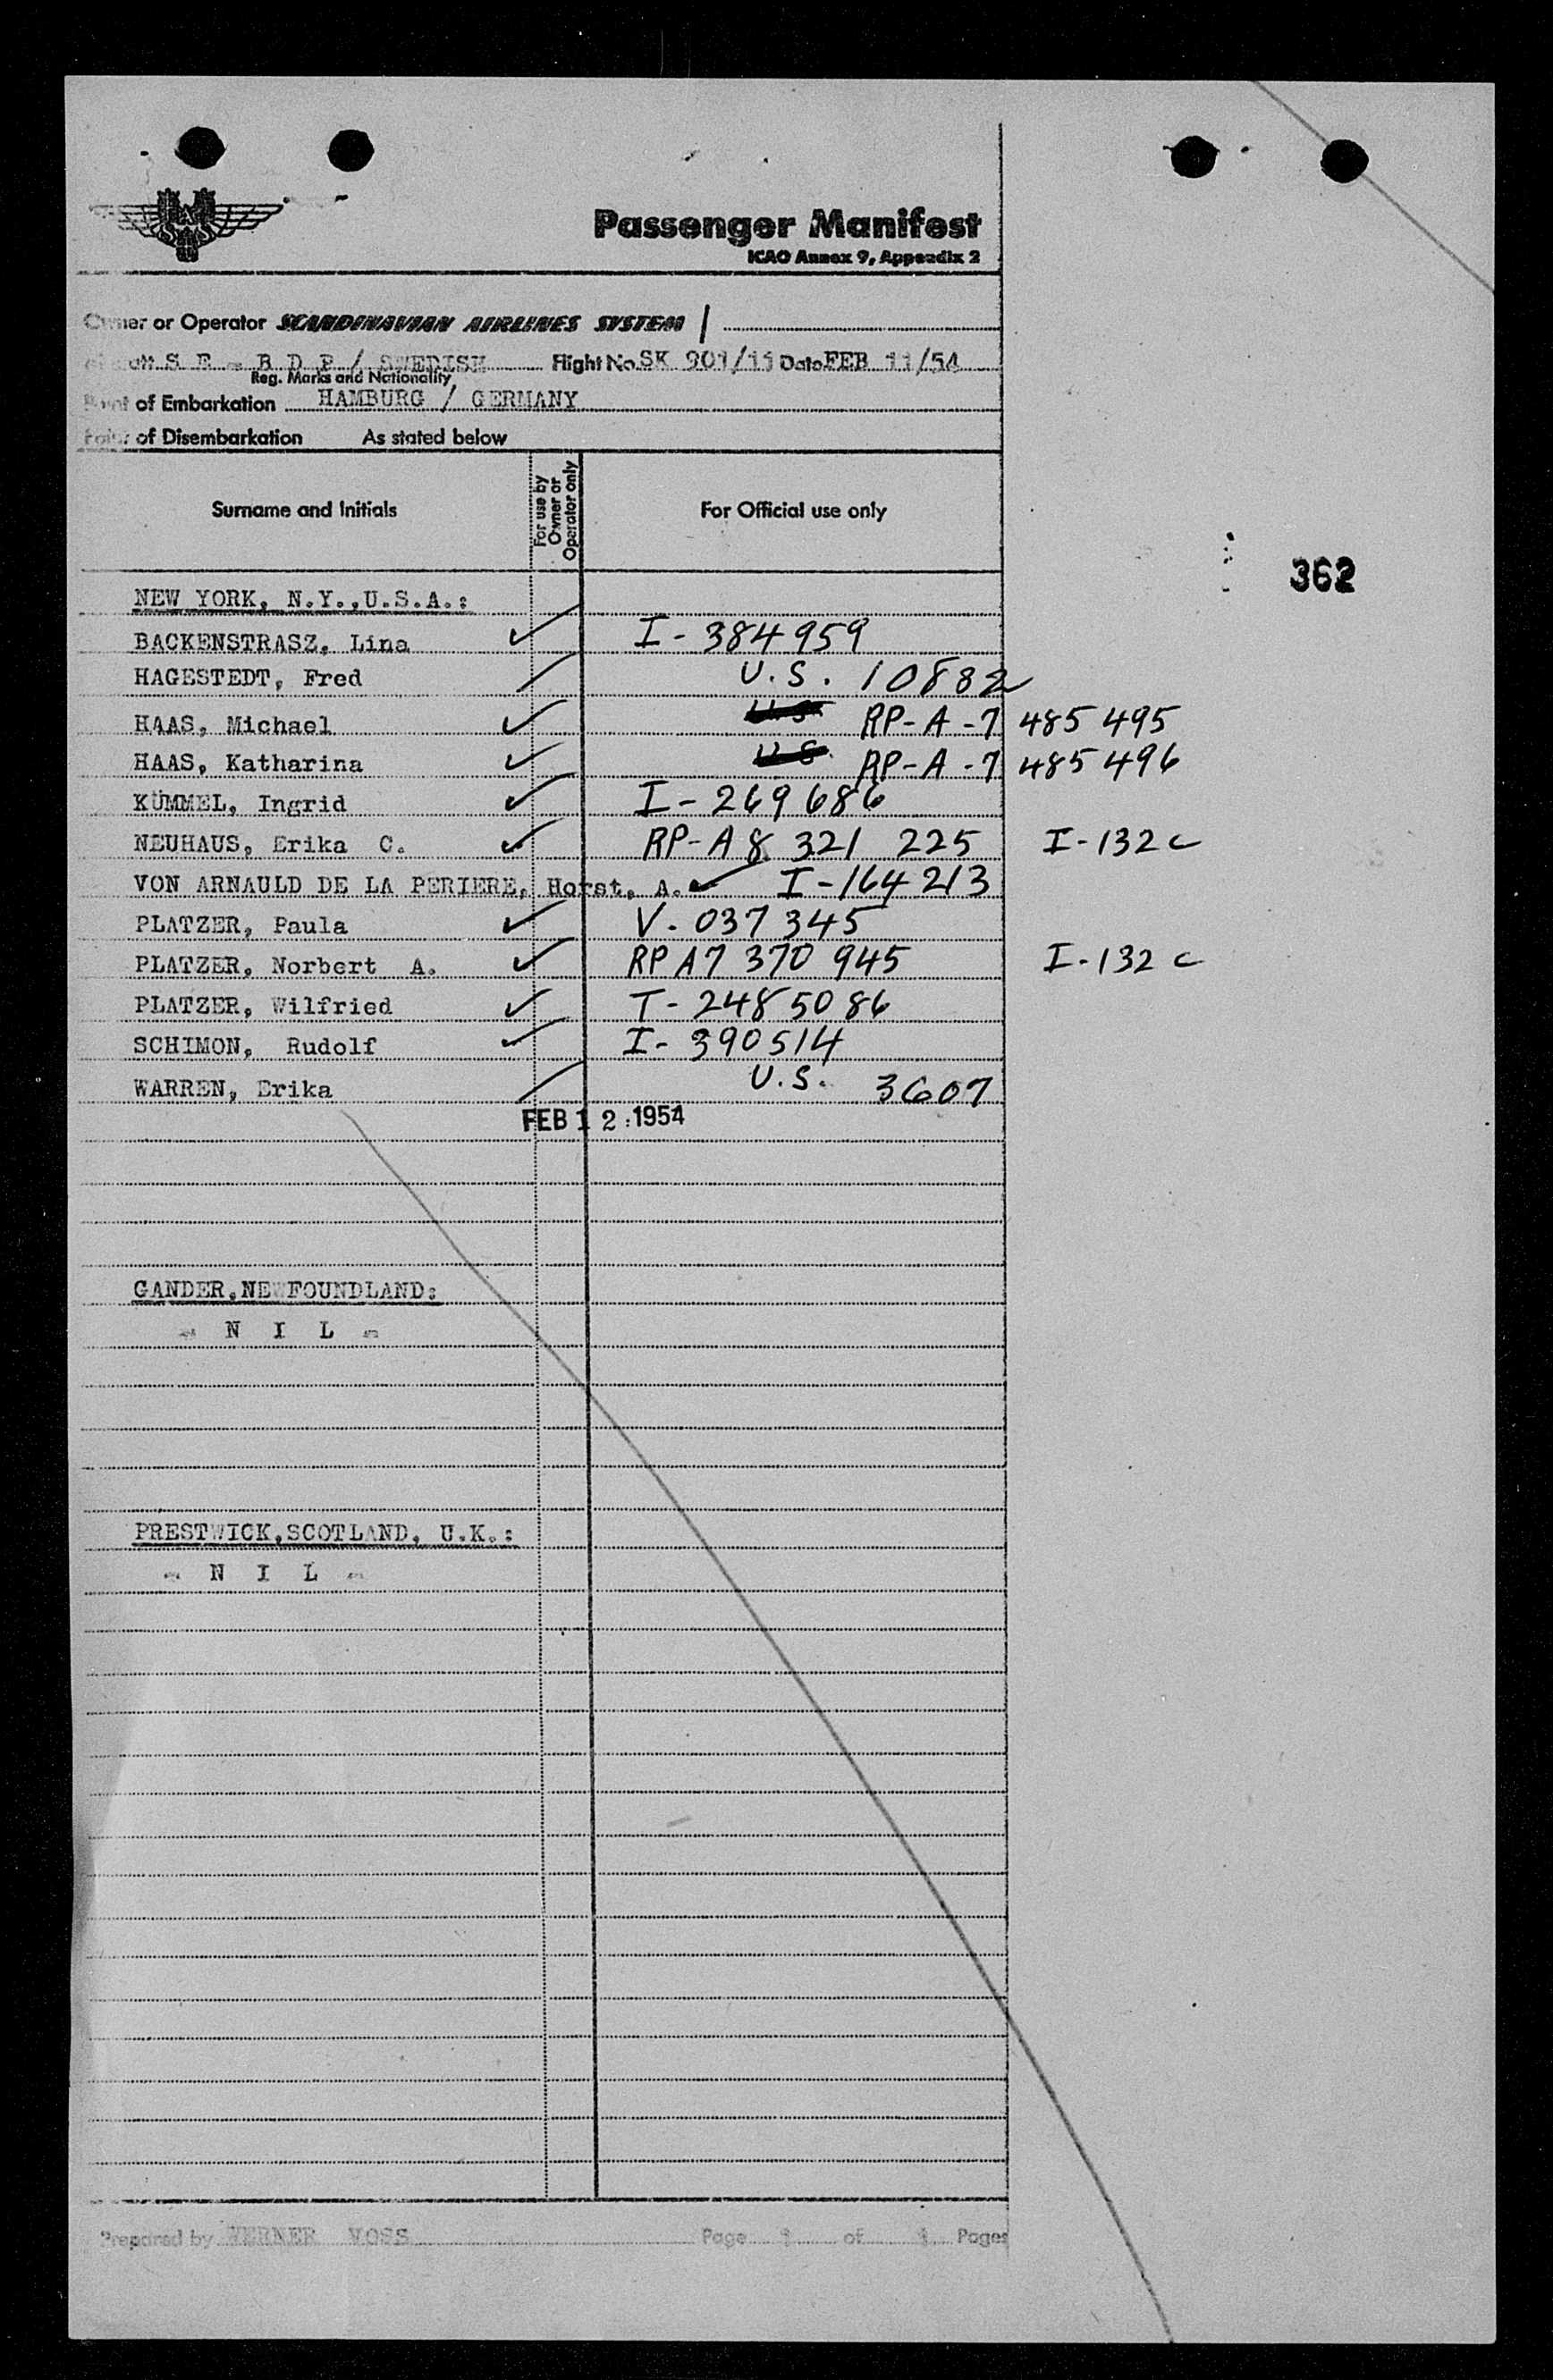 Passenger Manifest
ICAO Annex 9, Appendix 2
Owner or Operator SCANDINAVIAN AIRLINES SYSTEM
S E - B D P / SWEDISH Flight No. SK 901/11 Date FEB 11/54
Reg. Marks and Nationality
Point of Embarkation HAMBURG / GERMANY
Point of Disembarkation As stated below
Surname and Initials For use by Owner or Operator only For Official use only
362
NEW YORK, N.Y.,U.S.A.:
BACKENSTRASZ, Lina ✓ I - 384959
HAGESTEDT, Fred U.S. 10882
HAAS, Michael ✓ U.S. RP-A-7 485 495
HAAS, Katharina ✓ U.S. RP-A-7 485 496
KÜMMEL, Ingrid ✓ I - 269686
NEUHAUS, Erika C. ✓ RP-A8 321 225 I-132c
VON ARNAULD DE LA PERIERE, Horst, A. ✓ I-164213
PLATZER, Paula ✓ V. 037345
PLATZER, Norbert A. ✓ RP A7 370 945 I-132c
PLATZER, Wilfried ✓ T-2485086
SCHIMON, Rudolf ✓ I- 390514
WARREN, Erika U.S. 3607
FEB 12 1954
GANDER,NEWFOUNDLAND:
- N I L -
PRESTWICK,SCOTLAND, U.K.:
- N I L -
Prepared by WERNER VOSS Page 1 of 1 Pages